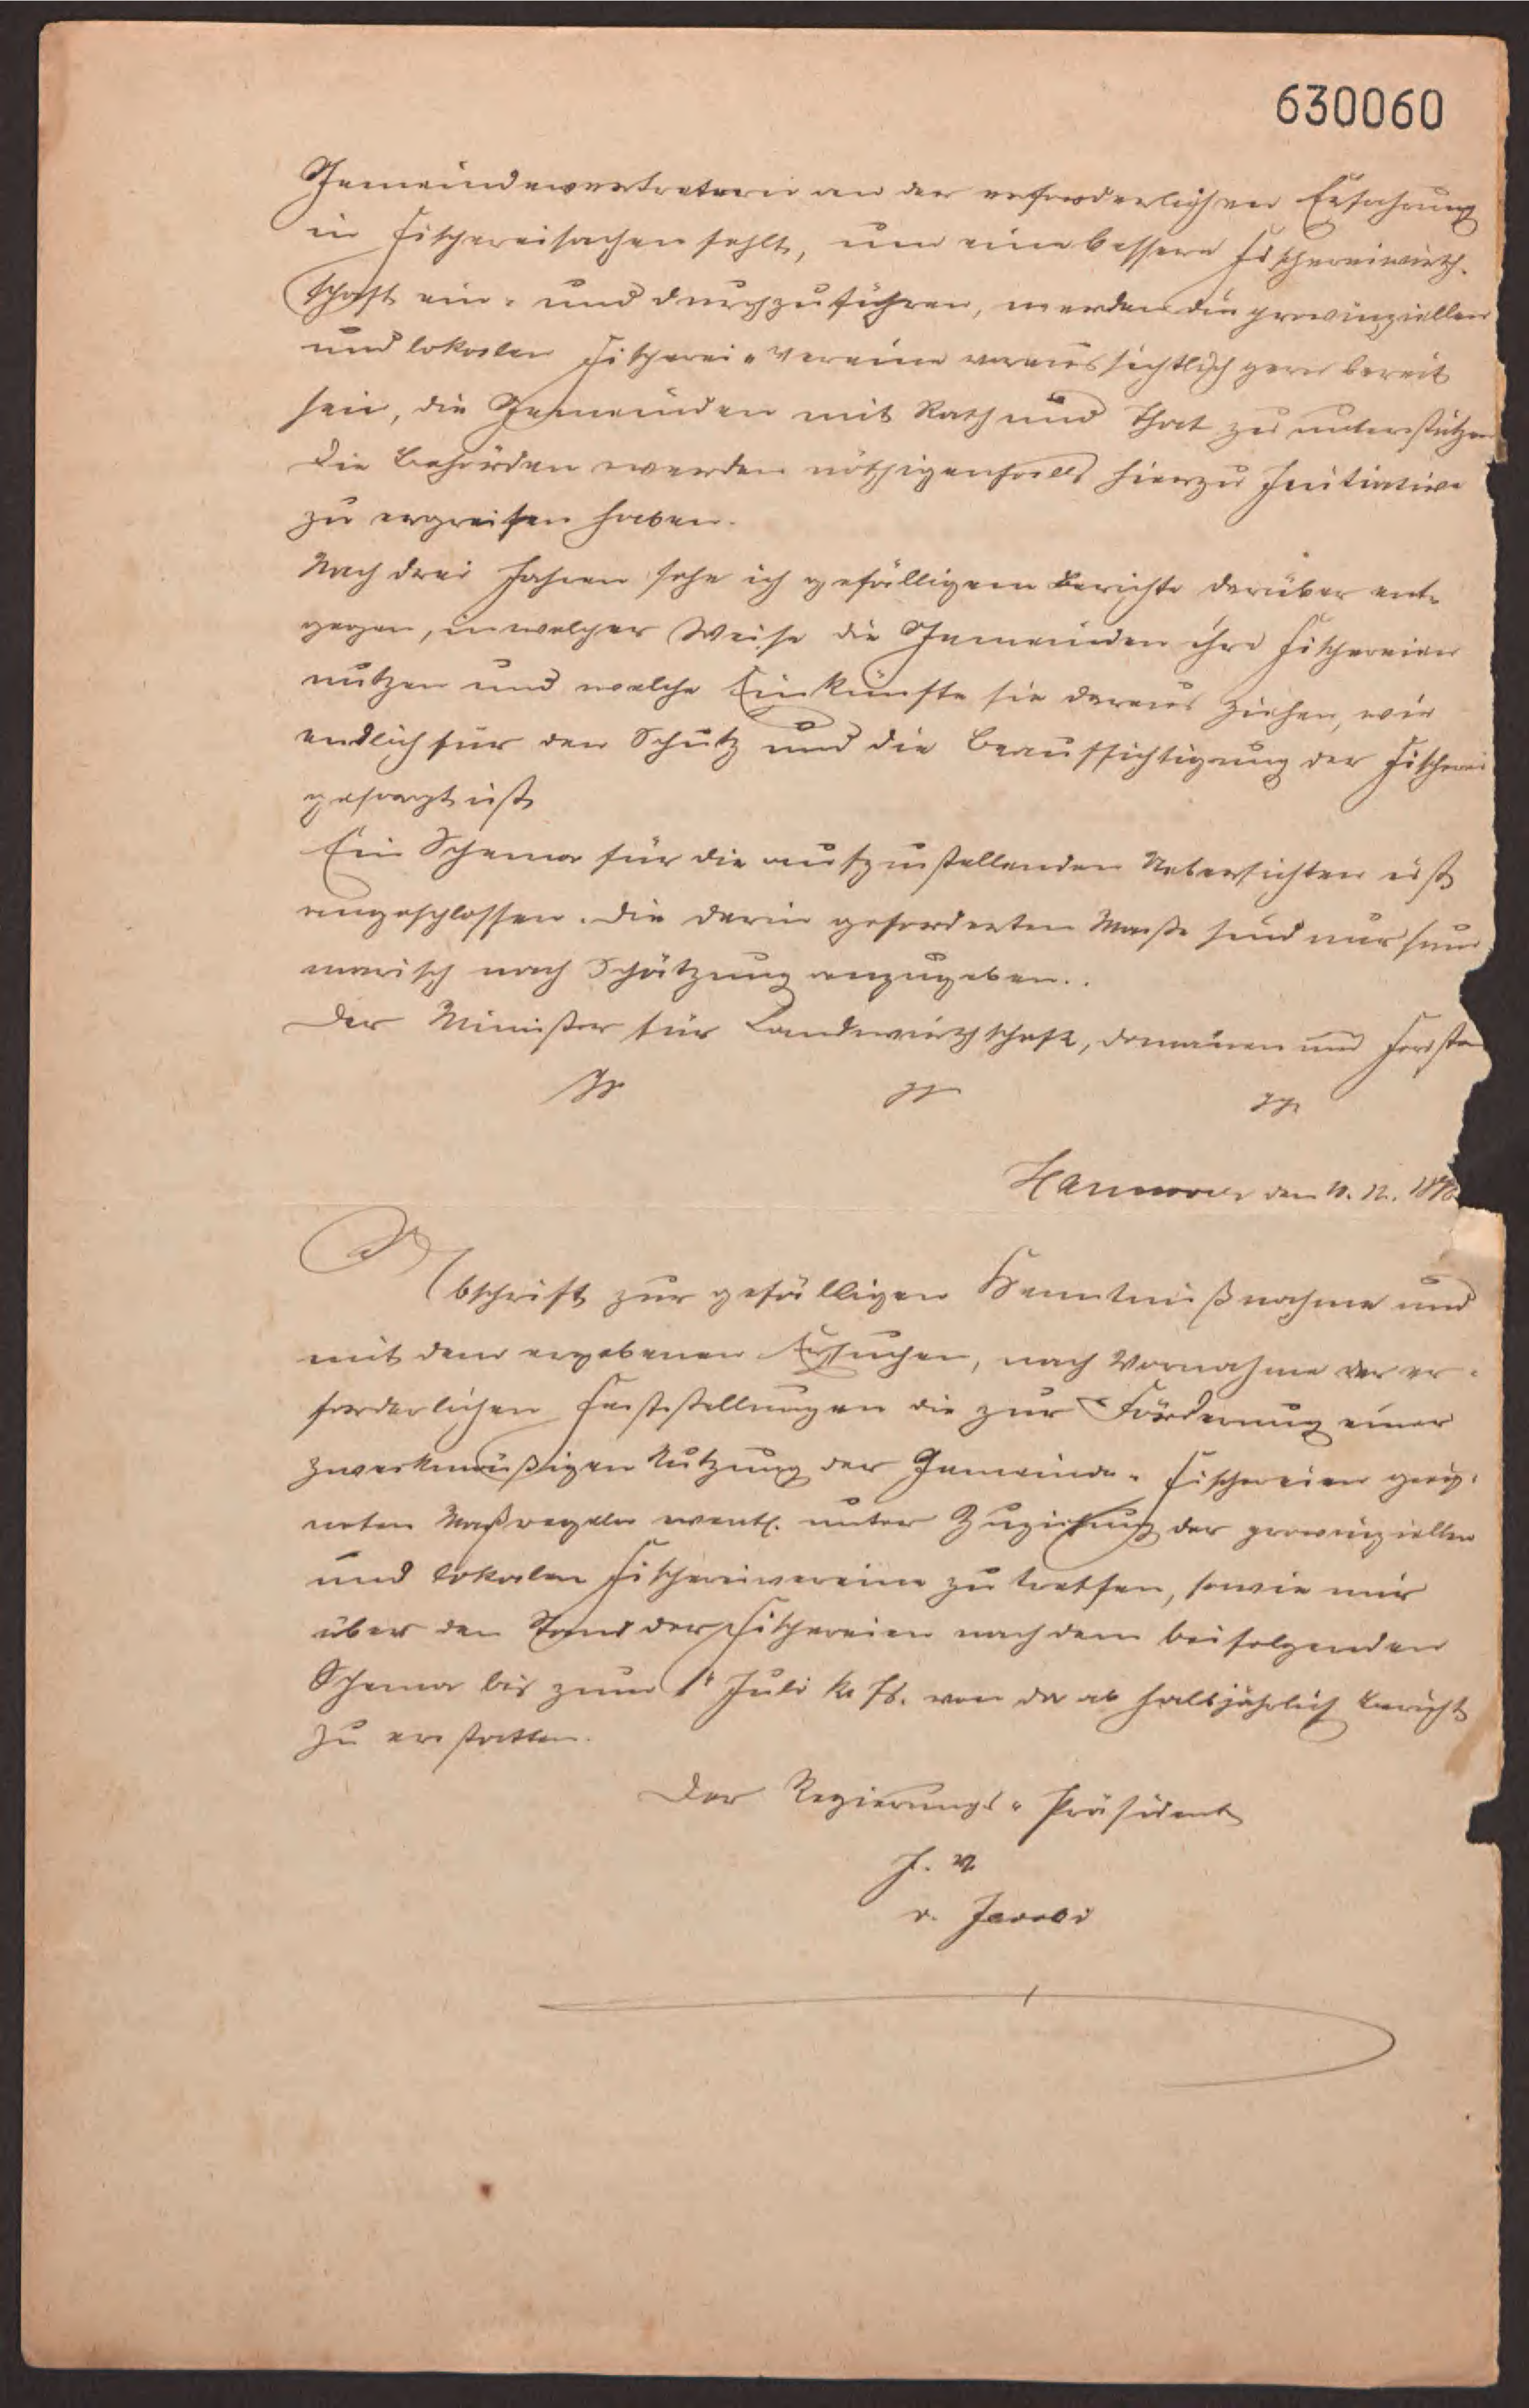 630060
Gemeindevertretern an der erforderlichen Erfahrung
in Fischereisachen fehlt, um eine bessere Fischereiwirth-
schaft ein- und durchzuführen, werden die provinziellen
und lokalen Fischerei-Vereine voraussichtlich gern bereit
sein, die Gemeinden mit Rath und That zu unterstützen
Die Behörden werden nöthigenfalls hierzu Initiative
zu ergreifen haben.
Nach drei Jahren sehe ich gefälligem Berichte darüber ent-
gegen, in welcher Weise die Gemeinden ihre Fischereien
nutzen und welche Einkünfte sie daraus ziehen, wie
endlich für den Schutz und die Beaufsichtigung der Fischerei
gesorgt ist
Ein Schema für die aufzustellenden Uebersichten ist
angeschlossen. Die darin geforderten Maße sind nur sum
marisch nach Schätzung anzugeben.
Der Minister für Landwirthschaft, Domänen und Forsten
Hannover den
Abschrift zur gefälligen Kenntnißnahme und
mit dem ergebenen Ersuchen, nach Vornahme der er-
forderlichen Feststellungen die zur Förderung einer
zweckmäßigen Nutzung der Gemeinde-Fischereien geeig-
neten Maßregeln eventl. unter Zuziehung der provinziellen
und lokalen Fischereivereine zu treffen, sowie mir
über den Stand der Fischereien nach dem beifolgenden
Schema bis zum 1t Juli k. Js. von da ab halbjährlich Bericht
zu erstatten.
Der Regierungs-Präsident
J. V.
v. Jacobi